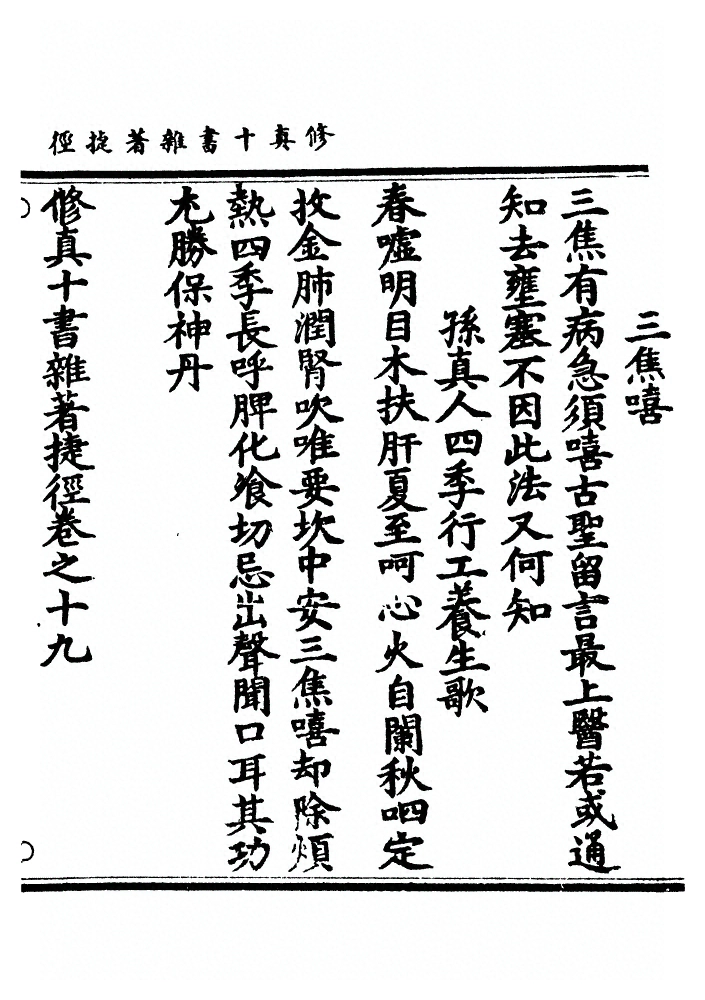 修真十書雜著捷徑
三焦嘻
三焦有病急須嘻古聖留言最上醫若或通
知去壅塞不因此法又何知
孫真人四季行工養生歌
春噓明目木扶肝夏至呵心火自闌秋呬定
收金肺潤腎吹唯要坎中安三焦嘻却除煩
熱四季長呼脾化飡切忌出聲聞口耳其功
尤勝保神丹
修真十書雜著捷徑卷之十九